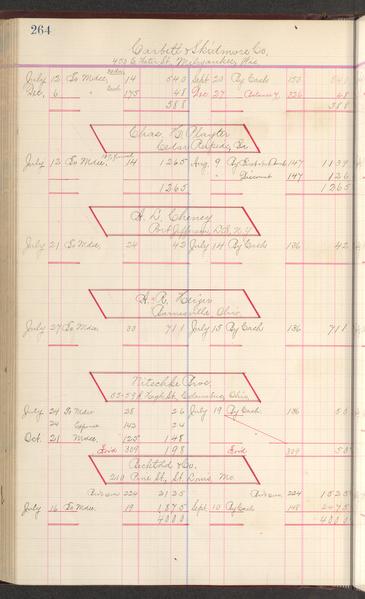 264
Corbett & Skidmore Co.
400 E Water St, Milwaukee, Wis.
July 12 To Mdse, 14 540 Sept 20 By Cash 150 540
Dec. 6 " 175 48 Dec 27 336 48
588 588
Chas. H. Playter
Cedar Rapids, Ia
July 12 To Mdse. 14 1265 Aug. 9 By 147 1139
" Discount 147 126
1265 1265
H. D. Cheney
Port Jefferson, N.Y.
July 21 To Mdse, 24 42 July 14 By Cash 136 42
H. R.
Barnesville, Ohio.
July 27 To Mdse 33 711 July 15 By Cash 136 711
Nitschke Bros.
High St, Columbus, Ohio
July 24 To Mdse 28 26 July 19 By Cash 136 50
24 Expense 142 24
Oct. 21 Mdse. 125 148
Fwd 309 198 Fwd 309 50
& Co.
210 Pine St, St Louis, Mo.
224 2125 224 1525
July 16 To Mdse. 19 1875 Sept. 10 By Cash 148 2475
4000 4000